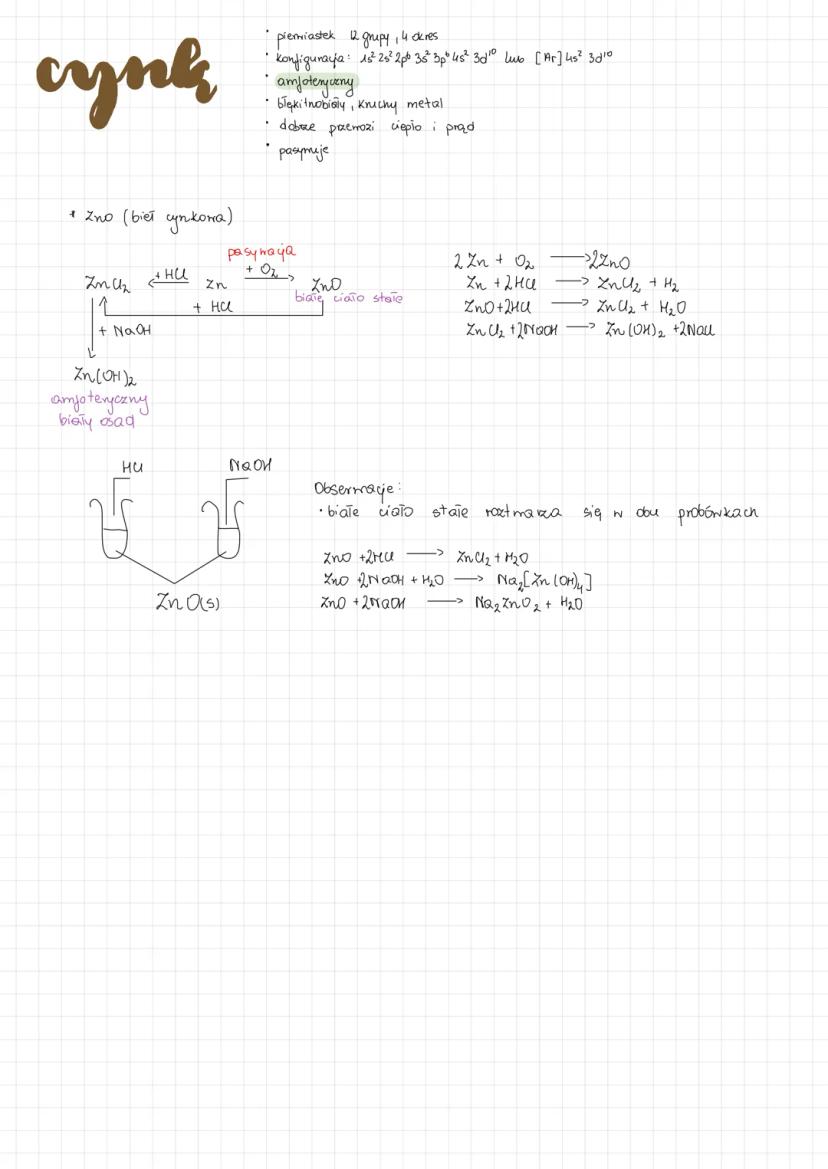 cynk
• pierwiastek 12 grupy, 4 okres
• konfiguracja: 1s² 2s² 2p⁶ 3s² 3p⁶ 4s² 3d¹⁰ lub [Ar] 4s² 3d¹⁰
• amfoteryczny
• błękitnobiały, kruchy metal
• dobrze przewozi ciepło i prąd
• pasywuje
* ZnO (biel cynkowa)
pasywacja
ZnCl₂ ⟵ + HCl Zn + O₂ ⟶ ZnO
białe ciało stałe
+ HCl
+ NaOH
Zn(OH)₂
amfoteryczny
biały osad
2 Zn + O₂ ⟶ 2ZnO
Zn + 2HCl ⟶ ZnCl₂ + H₂
ZnO + 2HCl ⟶ ZnCl₂ + H₂O
ZnCl₂ + 2NaOH ⟶ Zn(OH)₂ + 2NaCl
HCl NaOH
ZnO(s)
Obserwacje:
• białe ciało stałe roztwarza się w obu probówkach
ZnO + 2HCl ⟶ ZnCl₂ + H₂O
ZnO + 2NaOH + H₂O ⟶ Na₂[Zn(OH)₄]
ZnO + 2NaOH ⟶ Na₂ZnO₂ + H₂O